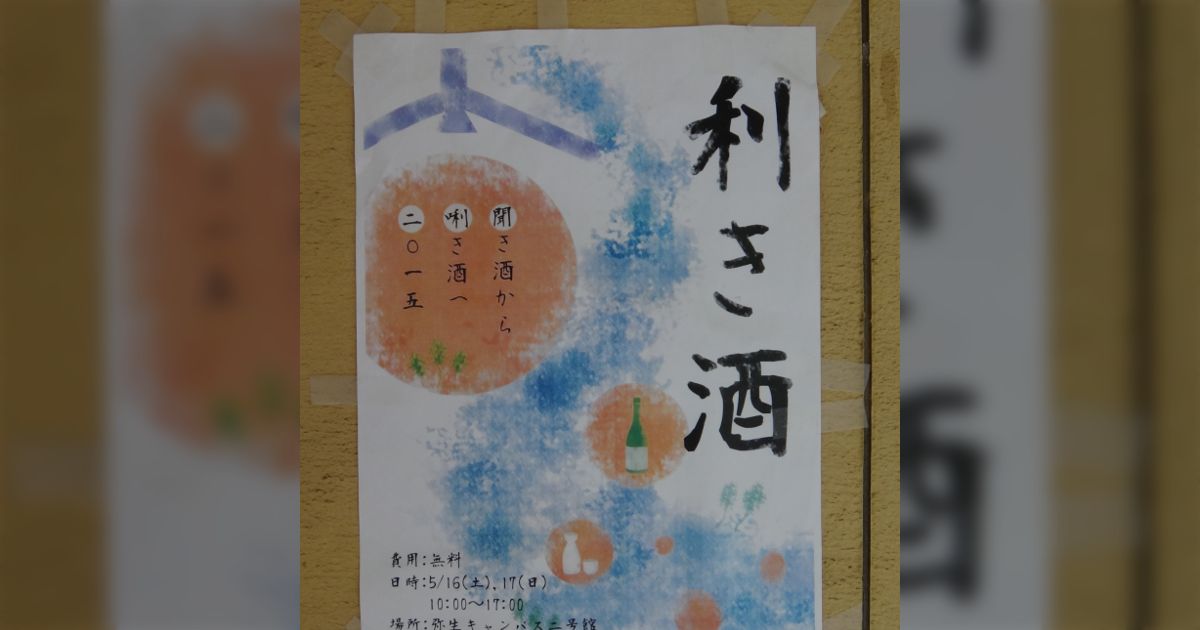 利き酒
聞き酒から
唎き酒へ
二〇一五
費用:無料
日時:5/16(土)、17(日)
10:00～17:00
場所:弥生キャンパス二号館